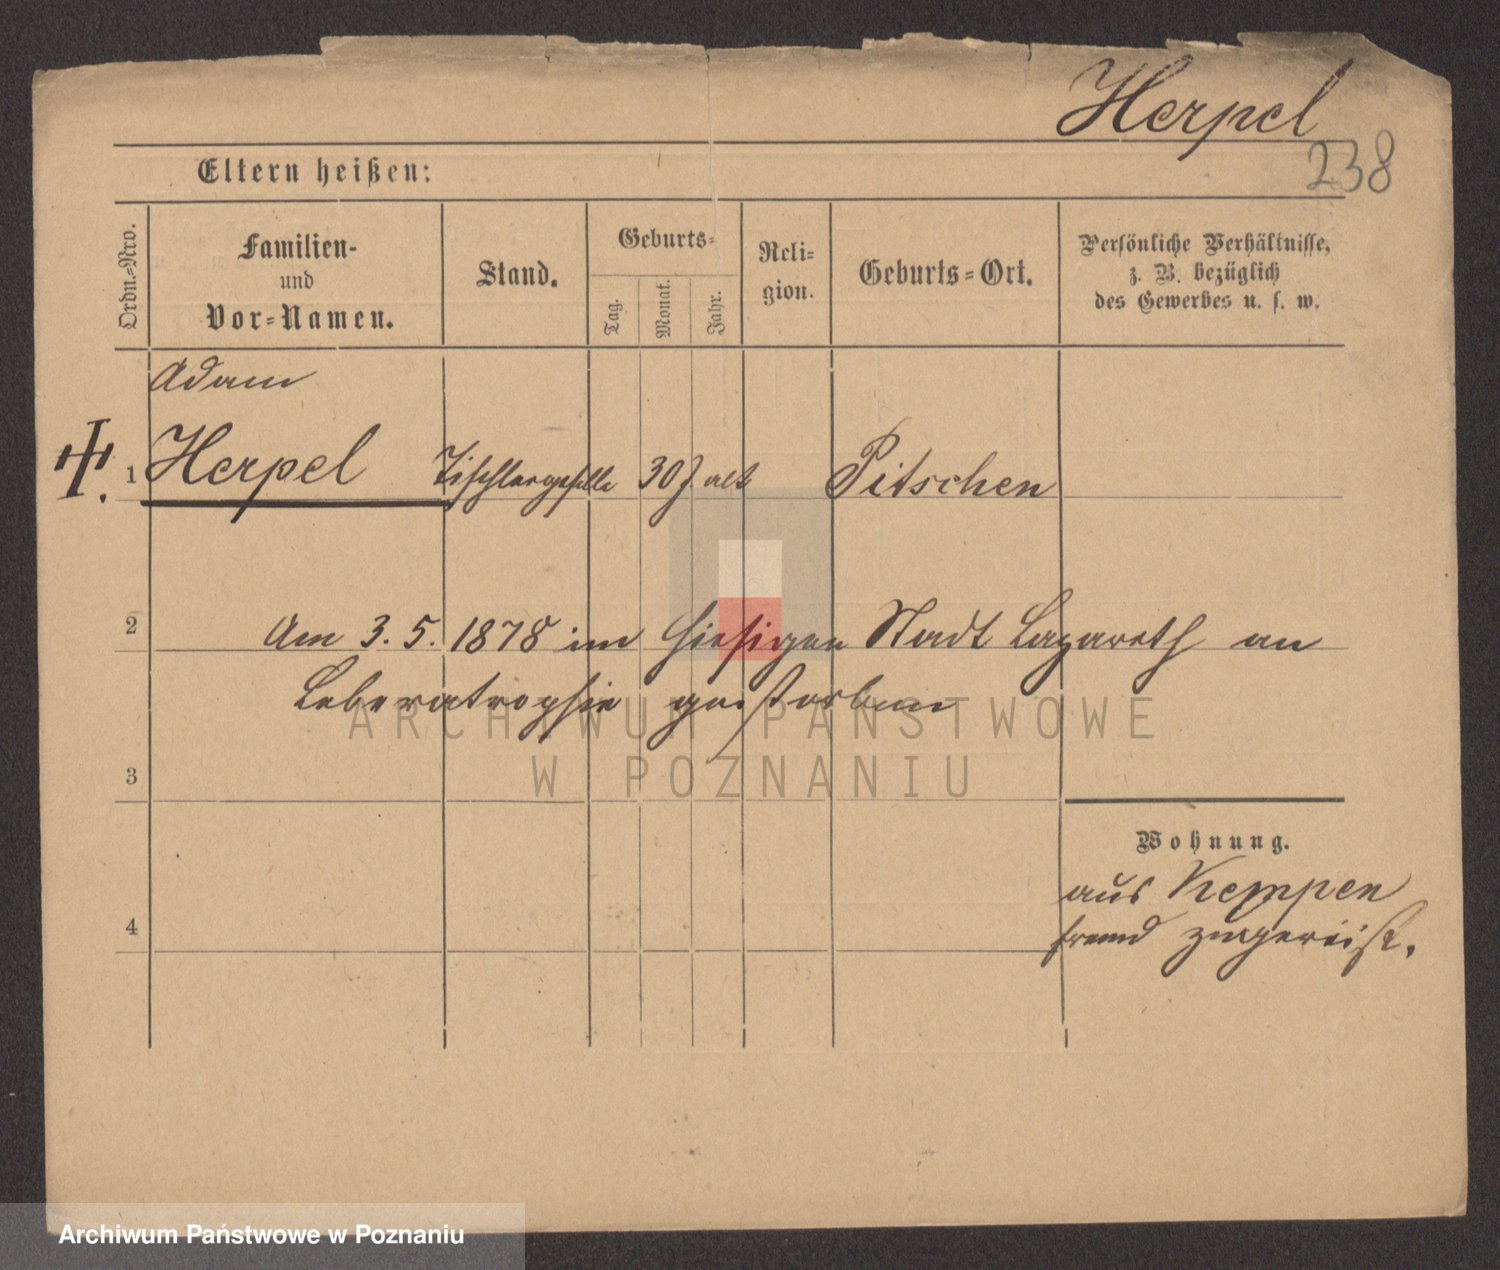 Herpel
238
Eltern heißen:
Ordn.=Nro.
Familien-
und
Vor=Namen.
Stand.
Geburts=
Tag.
Monat.
Jahr.
Reli-
gion.
Geburts=Ort.
Persönliche Verhältnisse,
z. B. bezüglich
des Gewerbes u. s. w.
Adam
1 Herpel Tischlergeselle 30 J. alt Pitschen
2 Am 3. 5. 1878 im hiesigen Stadt Lazareth an
Leberatrophie gestorben
ARCHIWUM PAŃSTWOWE
W POZNANIU
3
Wohnung.
aus Kempen
4 fremd zugereist.
Archiwum Państwowe w Poznaniu